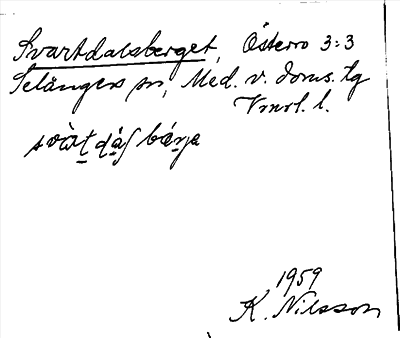 Svartdalsberget, Österro 3:3
Selångers sn, Med. v. doms. tg
Vnrl. l.
svàt̠ dạ́ʃ bárja
1959
K. Nilsson